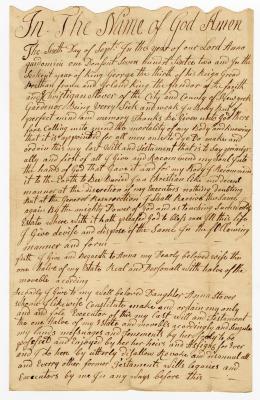 In The Name of God Amen
The Tenth Day of Sept. In the year of our Lord Anno
Domini one Thousand Seven hundred Sixtee two and In the
year of King George the third of his Reign Great
Brittan france and Ireland King the fender of the faith
and of the City and County of New york
being Very Sick and weak In body but of
perfect mind and memory Thanks be Given unto God there
fore Calling unto mind the mortality of my Body and knowing
that it is appointed for all men once to Die Do make and
ordain this my Last Will and Testament that is to Say princip
ally and first of all I Give and Recommend my Soul Into
the hands of God that Gave it and for my Body I Recommend
it to the Earth to be Buried In a Christian like and Decent
manner at the discretion of my Executors nothing doubting
But at the General Resurrection I Shall Receive the Same
again By the mighty Power of God and as Touching Such worldly
Estate where with it hath pleased God to bless me In this life
I Give devise and dispose of the Same In the following
manner and form
first I Give and Bequeath to Anna my Dearly beloved wife the
one halve of my Estate Real and Personall with halve of the
movable
Secondly I Give to my well beloved Daughter Anna
whome I likewise Constitute make and ordain my only
and Sole Executor of this my Last will and Testament
the one halve of my Estate and movables acordingly and Singular
my Lands mesuages and Tenements by her freely to be
posessed and Enjoyed by her her heirs and Assigns for Ever
and I do here by utterly disallow Revoke and disannul all
and Every other former Testaments Wills Legacies and
Executors by me In any ways before this